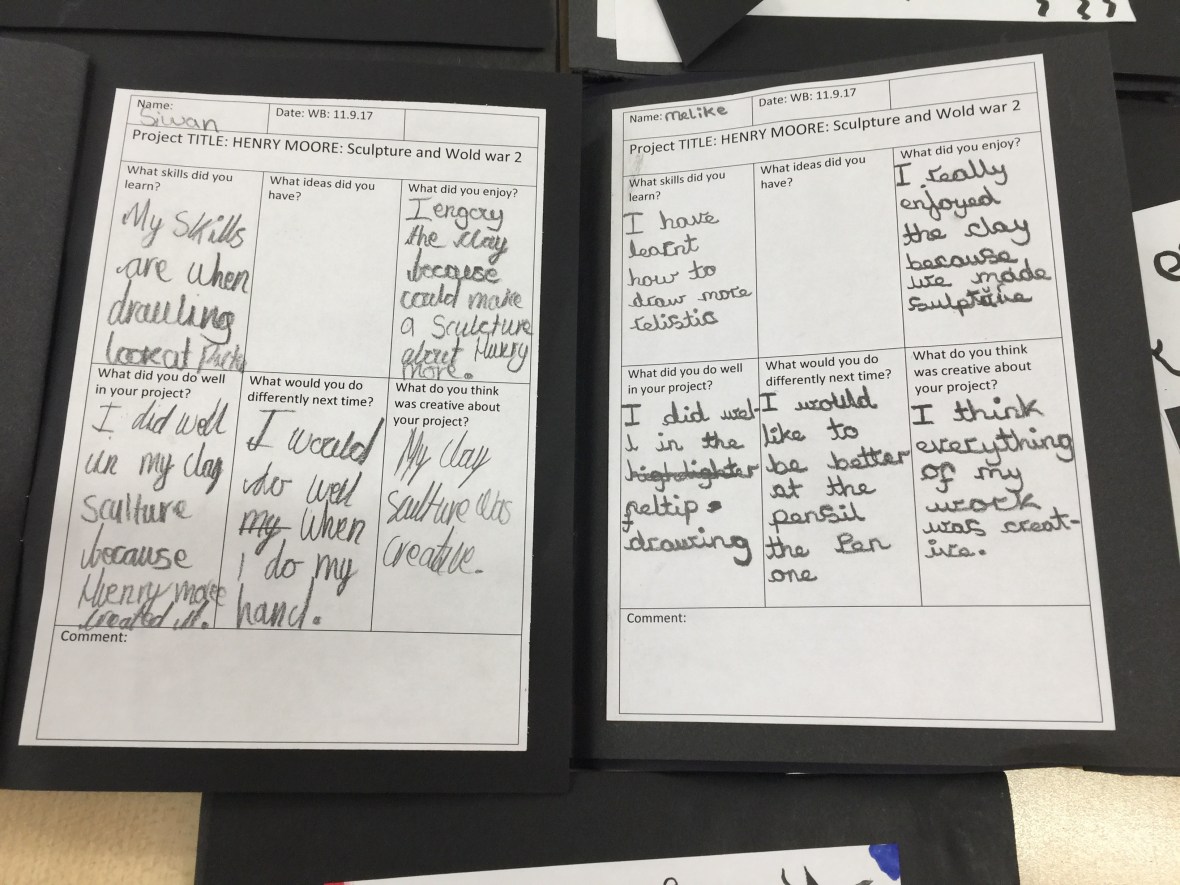 Name:
Siwan
Date: WB: 11.9.17
Project TITLE: HENRY MOORE: Sculpture and Wold war 2
What skills did you
learn?
My Skills
are when
drawling
look at
What ideas did you
have?
What did you enjoy?
I engoy
the clay
because
could make
a Sculcture
about Henry
more.
What did you do well
in your project?
I did well
in my clay
Sculture
because
Henry more
created it.
What would you do
differently next time?
I would
do well
my when
I do my
hand.
What do you think
was creative about
your project?
My clay
Sculture was
creative.
Comment:
Name: melike
Date: WB: 11.9.17
Project TITLE: HENRY MOORE: Sculpture and Wold war 2
What skills did you
learn?
I have
learnt
how to
draw more
relistic
What ideas did you
have?
What did you enjoy?
I really
enjoyed
the clay
because
we made
What did you do well
in your project?
I did wel-
l in the
highlighter
feltip
drawing
What would you do
differently next time?
I would
like to
be better
at the
pensil
the Pen
one
What do you think
was creative about
your project?
I think
everything
of my
work
was creat-
ive.
Comment: